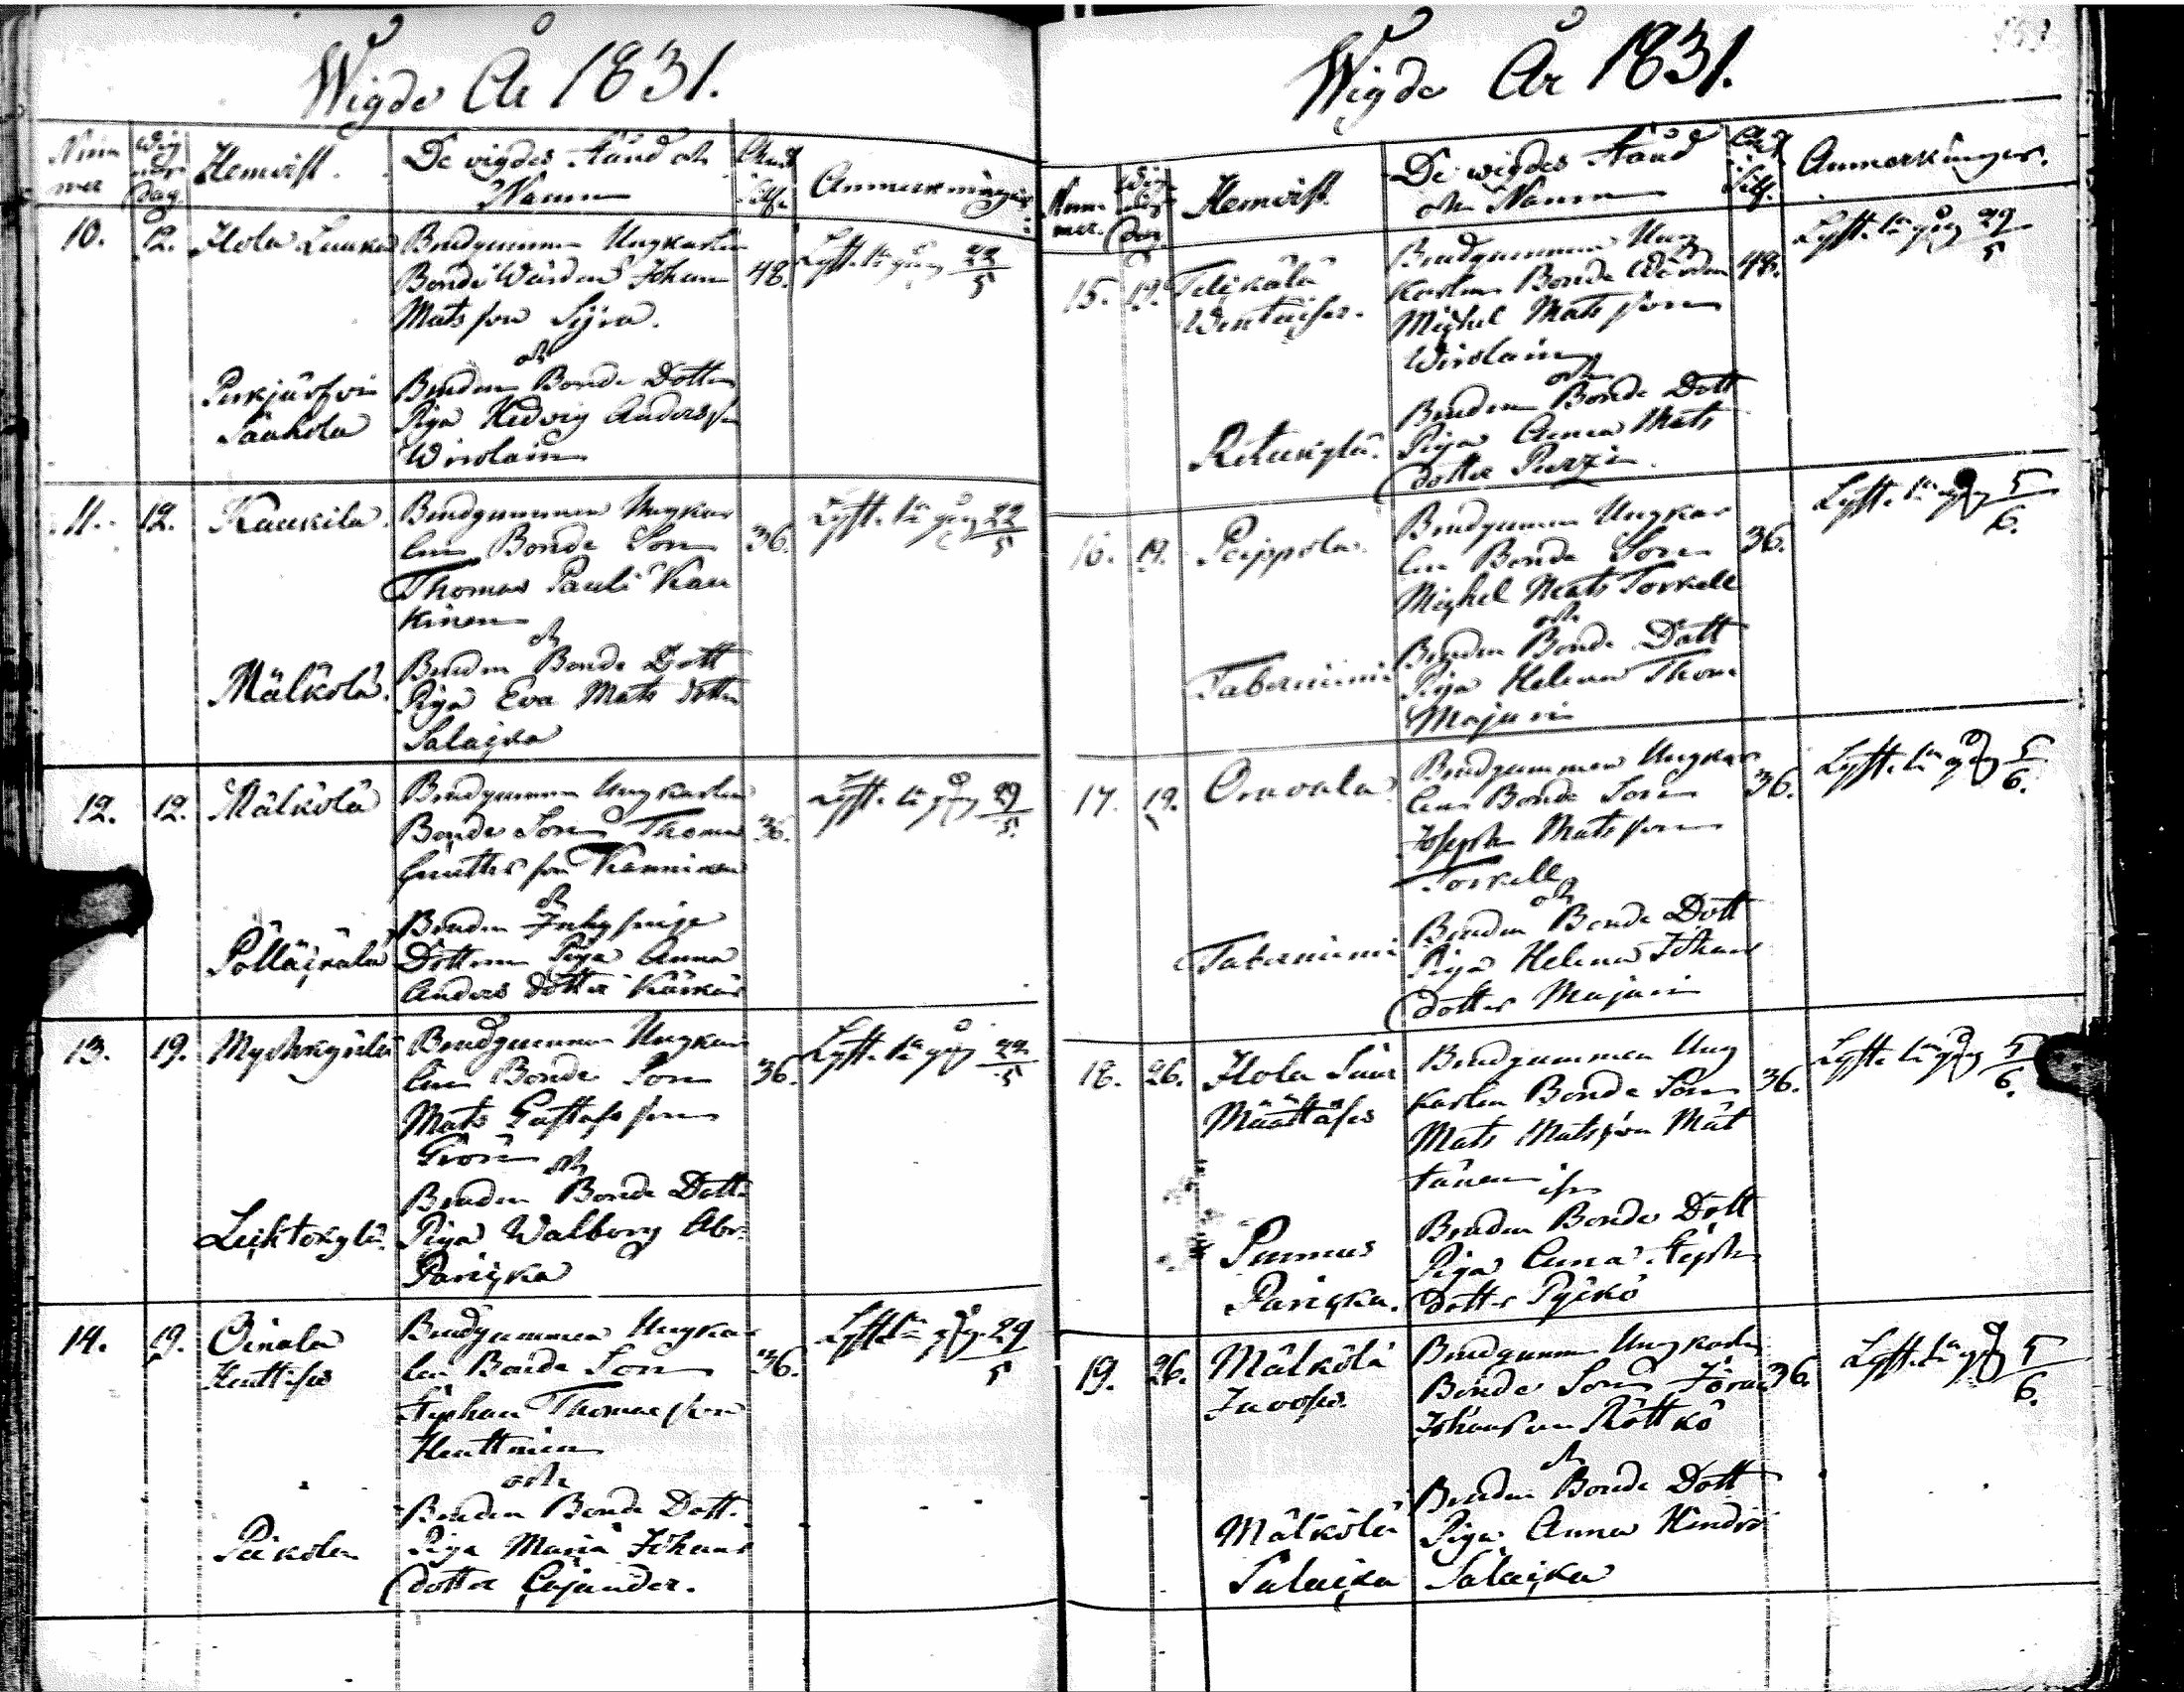 Wigde År 1831.
Num
mer
Wig
nings
Dag
Hemvist.
De vigdes stånd och
Namn
Anmerkningar
10.
12.
Ilola Laura
Brudgummen Ungkarlen
Bonde Wärden Johan
Matsson Sijra.
och
48.
Lyst. 1a gång 22/5
Pukjärfvi
Sauhola
Bruden Bonde Dotter
Piga Hedvig Andersdr
Wirolain
11.
12.
Kaukila.
Brudgummen Ungkar
len Bonde Son
Thomas Pauli Kau
kinen
och
36.
Lyst. 1a gång 22/5
Mälkölä.
Bruden Bonde Dott
Piga Eva Mats dotter
Salaika
12.
12.
Mälkölä
Brudgummen Ungkarlen
Bonde Son Thomas
son Kanninen
och
36.
Lyst. 1a gång 29/5.
Pölläkälä
Bruden
Dottren Piga Anna
Anders dotter
13.
19.
Brudgummen Ungkar
len Bonde Son
Mats Gustafs son
Grön och
36.
Lyst. 1a gång 22/5
Leiktokylä.
Bruden Bonde Dott
Piga Walborg Abr.
Parikka
14.
19.
Oinala
Heuttises
Brudgummen Ungkar
len Bonde Son
Stephan Thomas son
Heuttinen
och
36.
Lyst. 1a gång 29/5
Päkölä
Bruden Bonde Dott.
Piga Maria Johans
dotter Cajander.
Wigde År 1831.
Num
mer.
Wig
nings
Dag.
Hemvist.
De wigdes stånd
och Namn
Anmerkningar.
15.
19.
Telikälä
Wentäises.
Brudgummen Ung
karlen Bonde Wärden
Mighel Matsson
Wirolain
och
48.
Lyst. 1a gång 29/5
Ritukylä.
Bruden Bonde Dott
Piga Anna Mats
dotter
16.
19.
Peippola.
Brudgummen Ungkar
len Bonde Son
Mighel Mats Torkell
och
36.
Lyst. 1a gång 5/6.
Taberniemi
Bruden Bonde Dott
Piga Helena Thom
Majuri
17.
19.
Oravala.
Brudgummen Ungkar
len Bonde Son
Joseph Matsson
Torkell
och
36.
Lyst. 1a gång 5/6.
Taberniemi
Bruden Bonde Dott
Piga Helena Johans
dotter Majuri
18.
26.
Ilola Suur
Määttäses
Brudgummen Ung
karlen Bonde Son
Mats Matsson Mät
tänen och
36.
Lyst. 1a gång 5/6.
Punnus
Parikka.
Bruden Bonde Dott
Piga Anna Steph
dotter Pyikö
19.
26.
Mälkölä
Brudgummen Ungkarlen
Bonde Son Jöran
Johansson Röttkö
och
36.
Lyst. 1a gång 5/6.
Mälkölä
Salaika
Bruden Bonde Dott
Piga Anna Hindr
Salaika